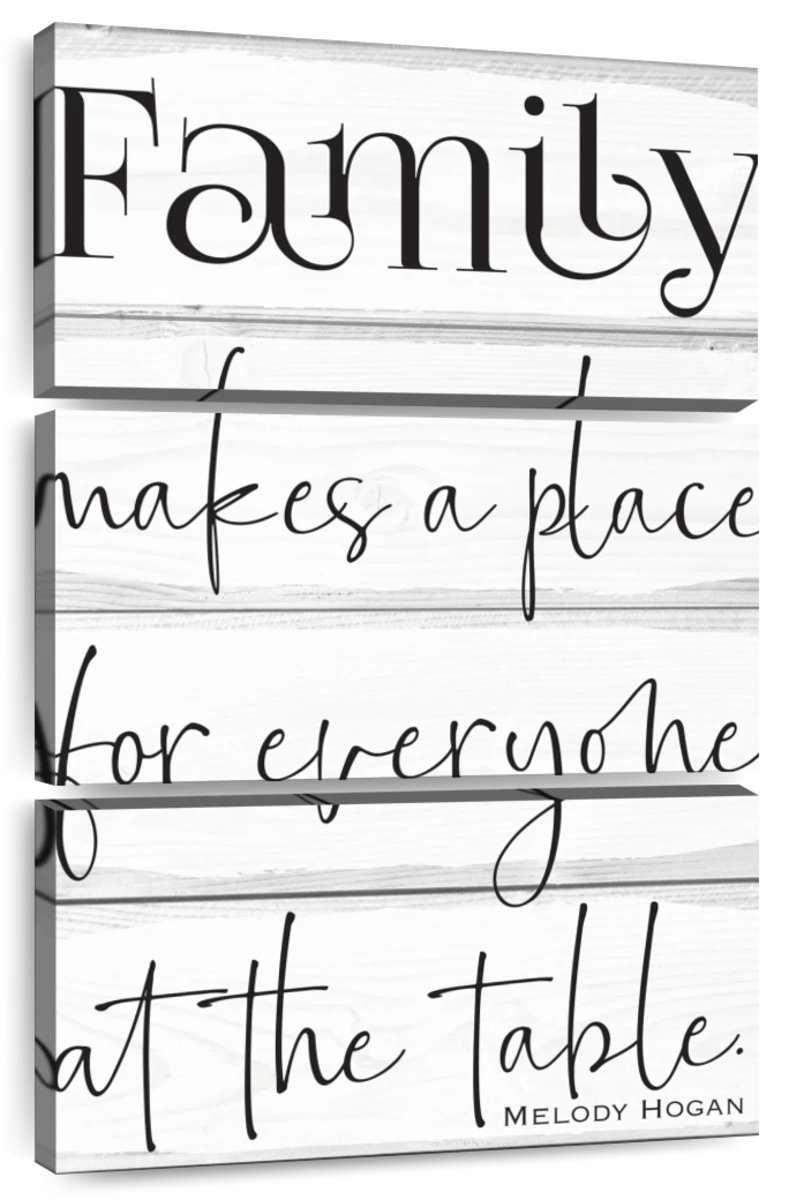 Family
makes a place
for everyone
at the table.
MELODY HOGAN